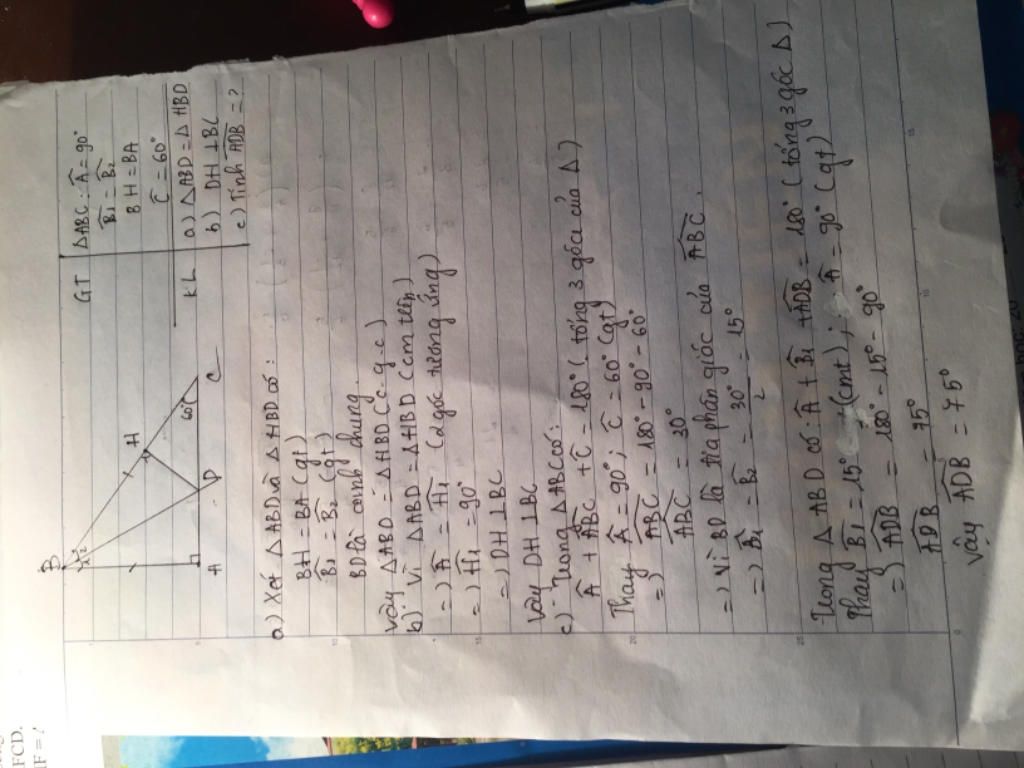 FCD.
F = ?
B
1
2
H
60°
A
D
C
GT
△ABC: Â = 90°
B̂₁ = B̂₂
BH = BA
Ĉ = 60°
KL
a) △ABD = △HBD
b) DH ⊥ BC
c) Tính ADB = ?
a) Xét △ABD và △HBD có:
BH = BA (gt)
B̂₁ = B̂₂ (gt)
BD là cạnh chung.
Vậy △ABD = △HBD (c-g-c)
b) Vì △ABD = △HBD (cm trên)
=) Â = Ĥ₁ (2 góc tương ứng)
=) Ĥ₁ = 90°
=) DH ⊥ BC
Vậy DH ⊥ BC
c) - Trong △ABC có:
Â + ABC + Ĉ = 180° (tổng 3 góc của △)
Thay Â = 90°; Ĉ = 60° (gt)
=) ABC = 180° - 90° - 60°
ABC = 30°
=) Vì BD là tia phân giác của ABC.
=) B̂₁ = B̂₂ = 30°/2 = 15°
Trong △ABD có: Â + B̂₁ + ADB = 180° (tổng 3 góc △)
Thay B̂₁ = 15° (cmt); Â = 90° (gt)
=) ADB = 180° - 15° - 90°
ADB = 75°
Vậy ADB = 75°